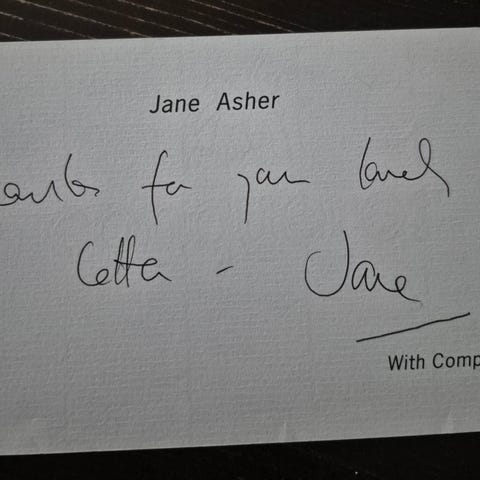 Jane Asher
anks for your lovely
letter - Jane
With Comp